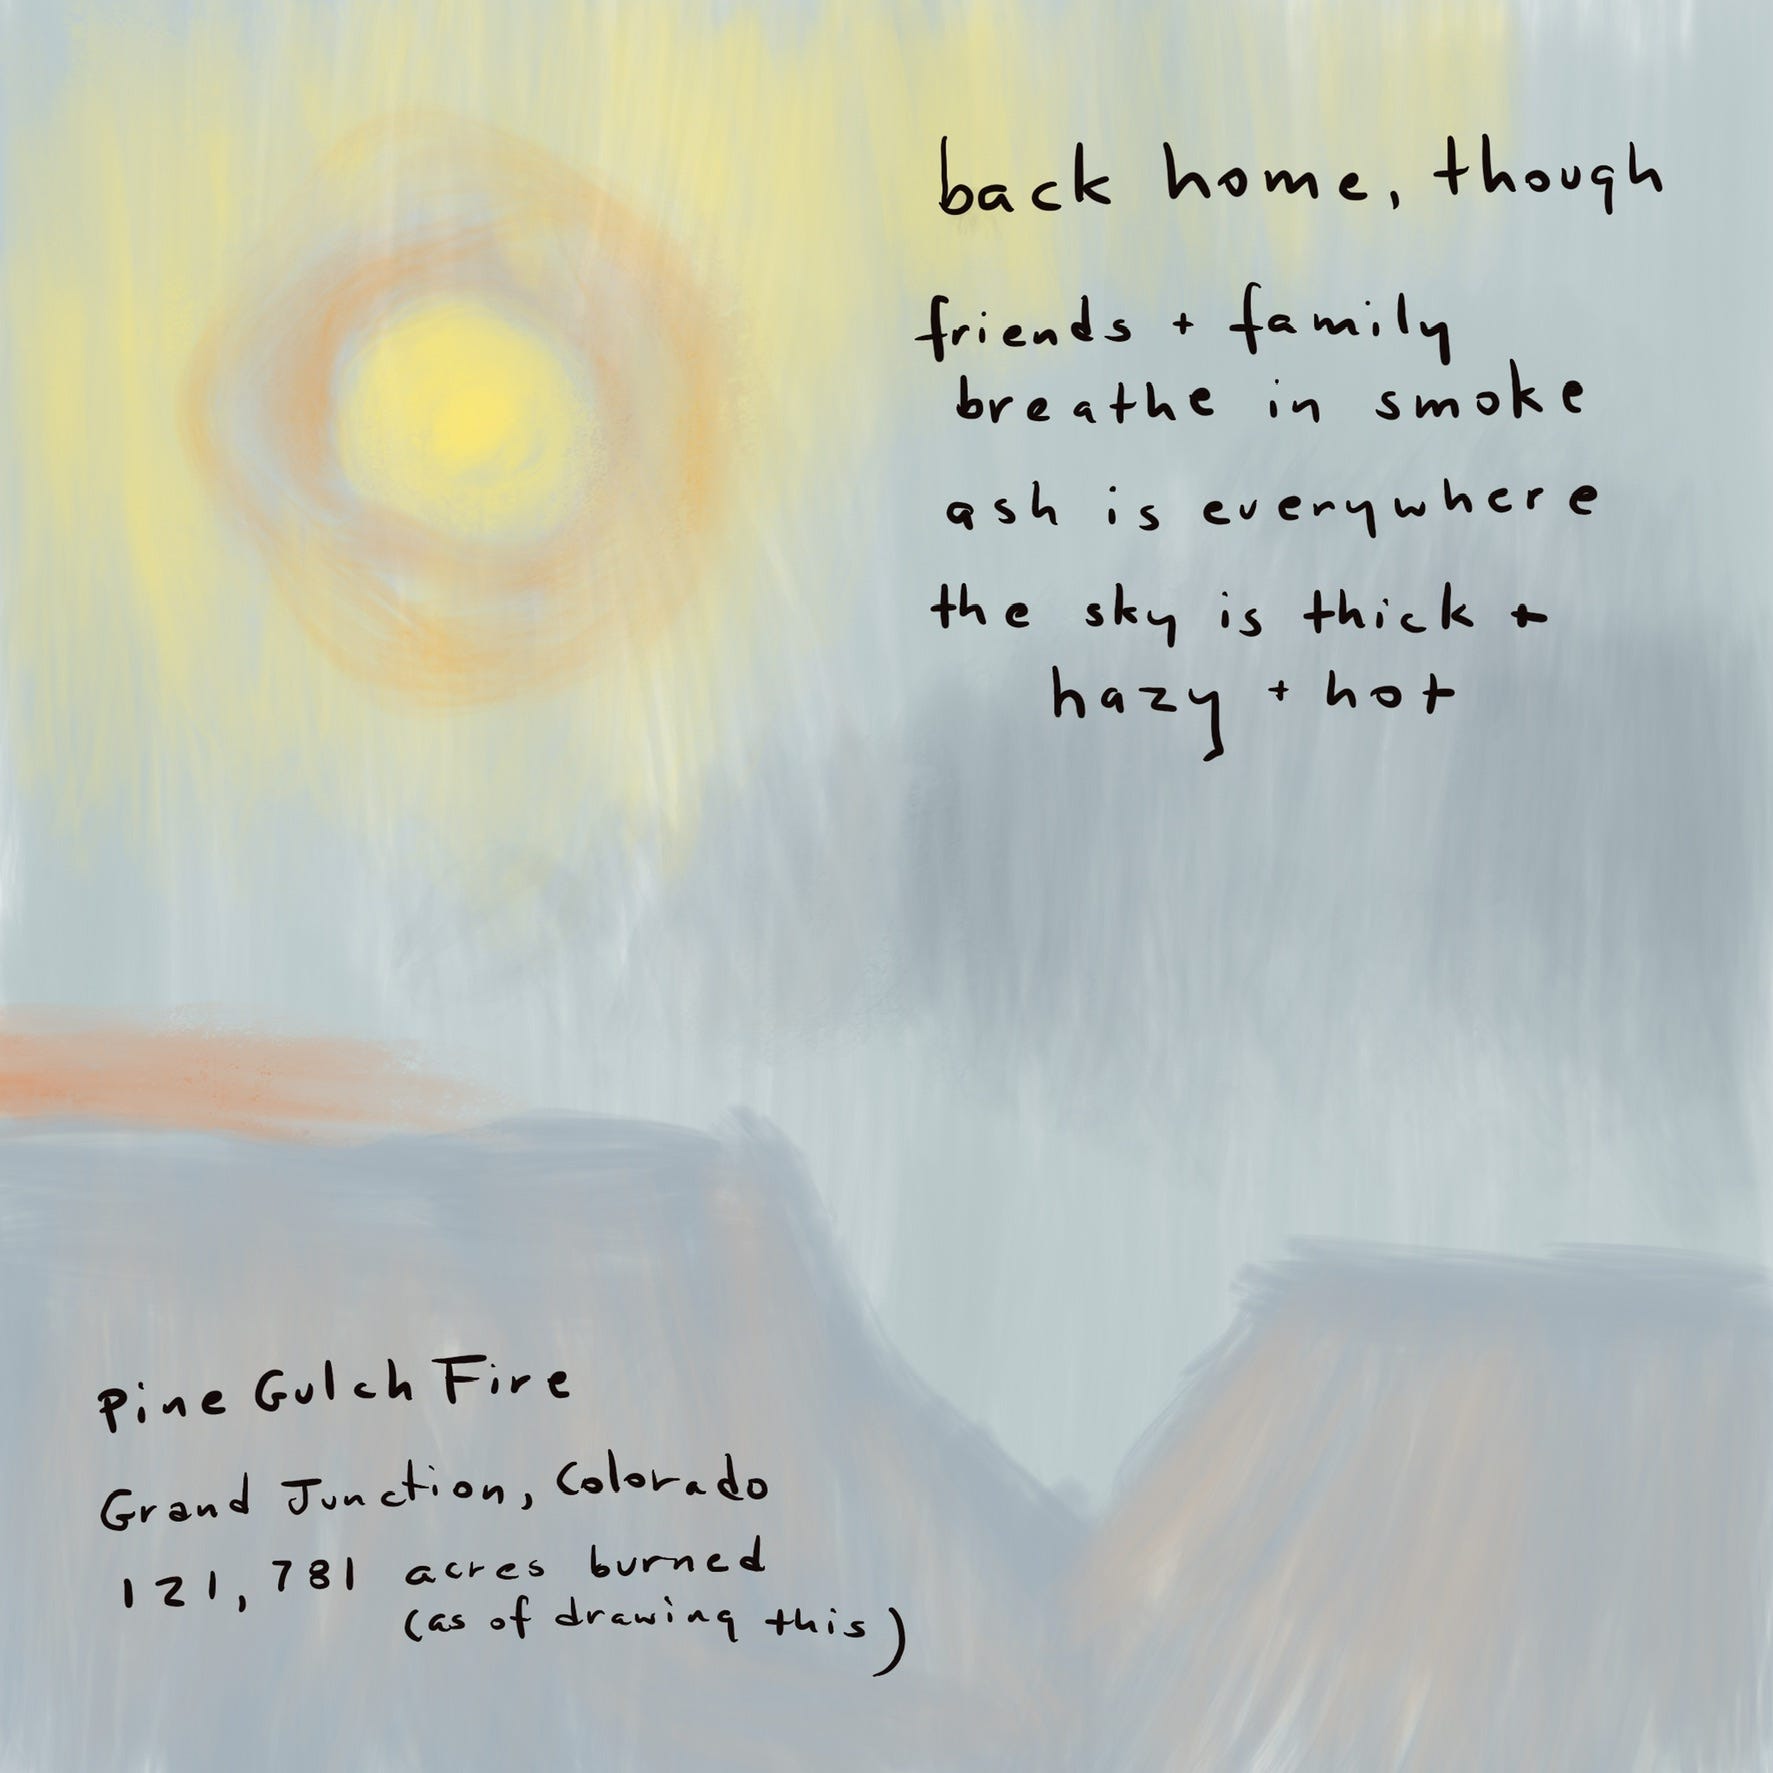 back home, though
friends + family
breathe in smoke
ash is everywhere
the sky is thick +
hazy + hot
Pine Gulch Fire
Grand Junction, Colorado
121,781 acres burned
(as of drawing this)